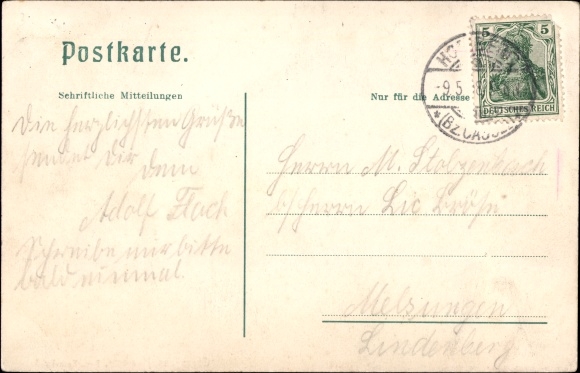 Postkarte.
Schriftliche Mitteilungen
Nur für die Adresse
5 5
DEUTSCHES REICH
-9.5
*(BZ.CASSEL)
Die herzlichsten Grüße
sendet Dir
Dein
Adolf Flach
Schreibe mir bitte
bald einmal.
Herrn M. Stolzenbach
b/Herrn Lic Bröse
Melsungen
Lindenberg